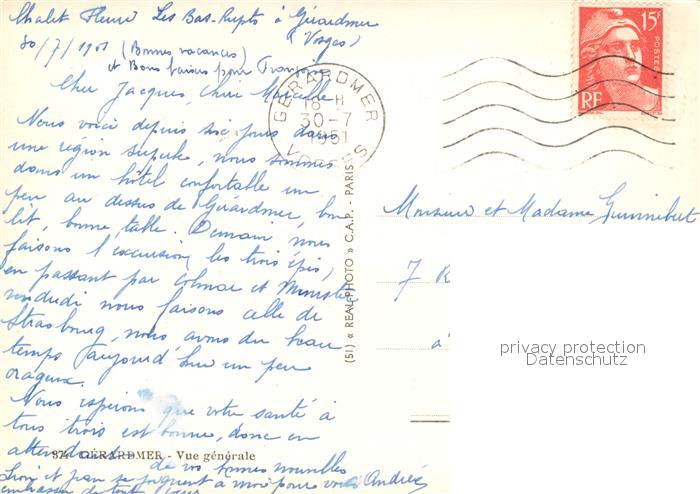 Chalet Fleuri Les Bas-Rupts à Gérardmer
(Vosges)
30/7/1951 (Bonnes vacances)
et Bons baisers pour Françoise
Cher Jacques, Chère Marcelle
Nous voici depuis six jours dans
une région superbe, nous sommes
dans un hôtel confortable un
peu au dessus de Gérardmer, bon
lit, bonne table. Demain, nous
faisons l'excursion, les trois épis,
en passant par Colmar et Munster
vendredi nous faisons celle de
Strasbourg, nous avons du beau
temps aujourd'hui un peu
orageux.
Nous espérons que votre santé à
tous trois est bonne, donc en
attendant de vos bonnes nouvelles
se joignent à moi pour vous
embrasser de tout cœur
Andrée
874 GÉRARDMER - Vue générale
(51) « REAL-PHOTO » C.A.P. - PARIS
GÉRARDMER
18 H
30-7
1951
VOSGES
15F
POSTES
RF
Monsieur et Madame
7 R
à
privacy protection
Datenschutz